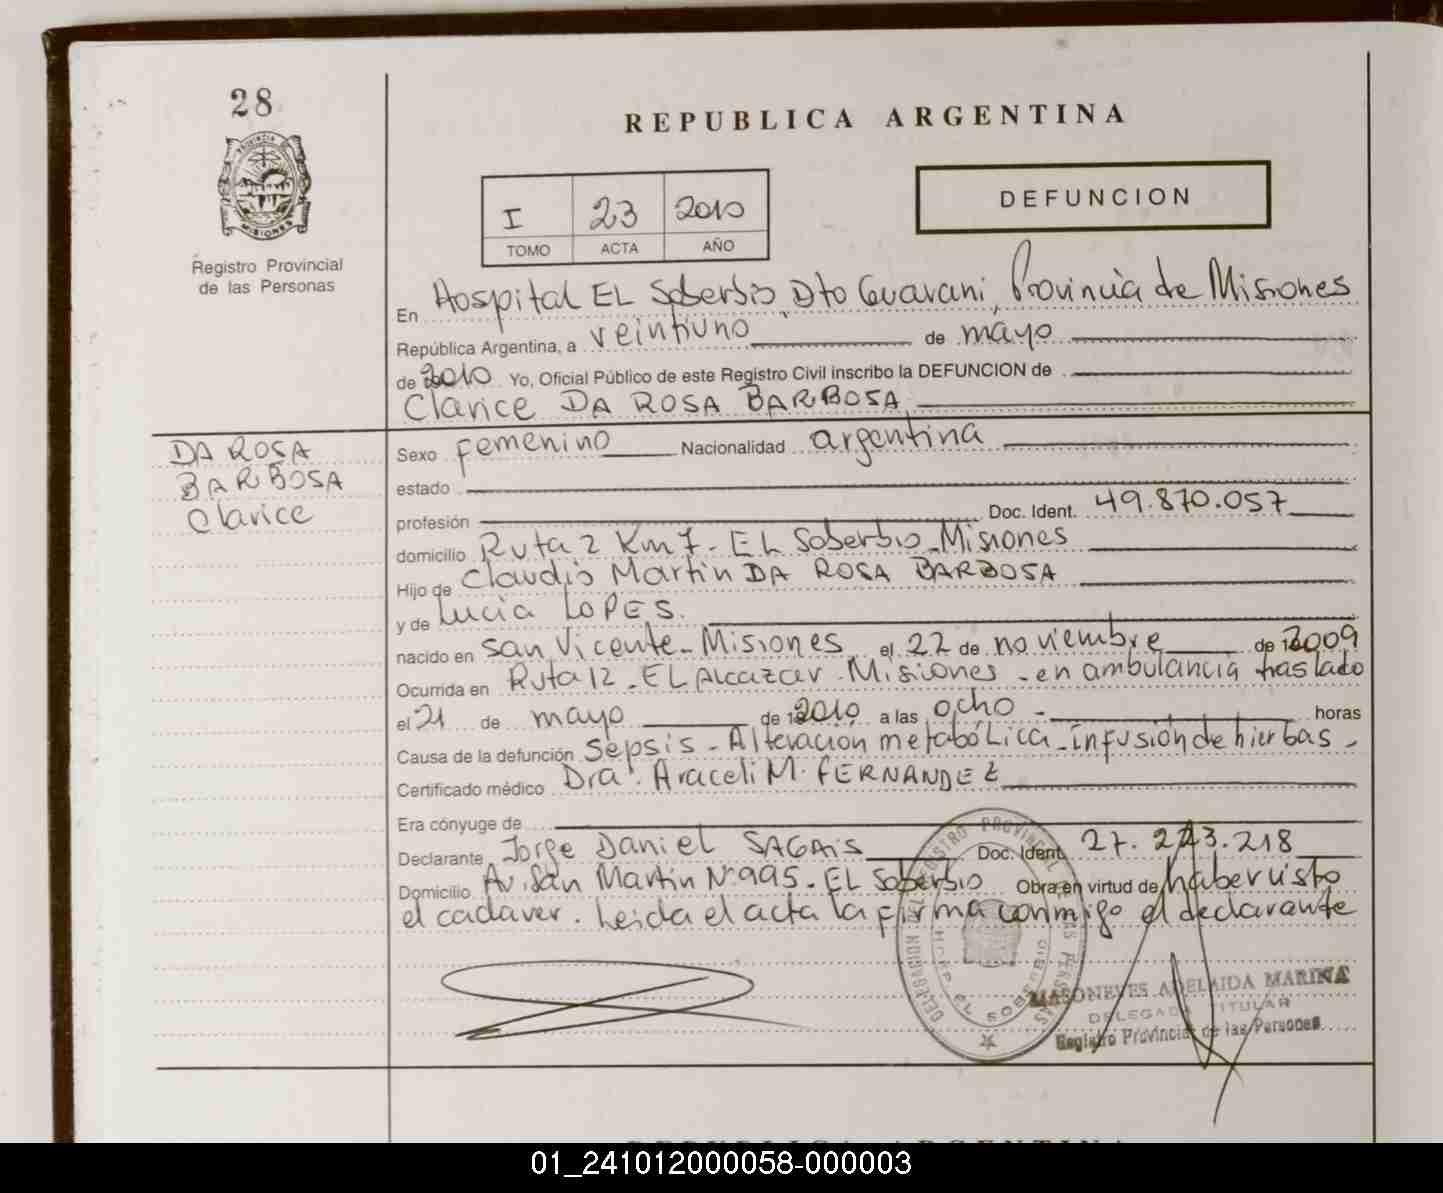 28
REPUBLICA ARGENTINA
PROVINCIA DE
MISIONES
Registro Provincial
de las Personas
I 23 2010
TOMO ACTA AÑO
DEFUNCION
En Hospital EL Soberbio, Dto Guarani, Provincia de Misiones
República Argentina, a veintiuno de mayo
de 2010 Yo, Oficial Público de este Registro Civil inscribo la DEFUNCION de
Clarice DA ROSA BARBOSA
DA ROSA
BARBOSA
Clarice
Sexo femenino Nacionalidad argentina
estado
profesión Doc. Ident. 49.870.057
domicilio Ruta 2 Km 7. EL Soberbio - Misiones
Hijo de Claudio Martin DA ROSA BARBOSA
y de Lucia LOPES.
nacido en San Vicente - Misiones el 22 de noviembre de 2009
Ocurrida en Ruta 12 - EL Alcazar - Misiones - en ambulancia traslado
el 21 de mayo de 2010 a las ocho - horas
Causa de la defunción Sepsis - Alteracion metabóLica - infusión de hierbas -
Certificado médico Dra. Araceli M. FERNANDEZ
Era cónyuge de
Declarante Jorge Daniel SAGAIS Doc. Ident. 27.243.218
Domicilio Av. San Martin N° 995 - EL Soberbio Obra en virtud de haber visto
el cadaver. Leida el acta la firma conmigo el declarante
DELEGACION DEL REGISTRO PROVINCIAL DE LAS PERSONAS
HOSP. EL SOBERBIO
MASONEVES ADELAIDA MARINA
DELEGADA TITULAR
Registro Provincial de las Personas
REPUBLICA ARGENTINA
01_241012000058-000003